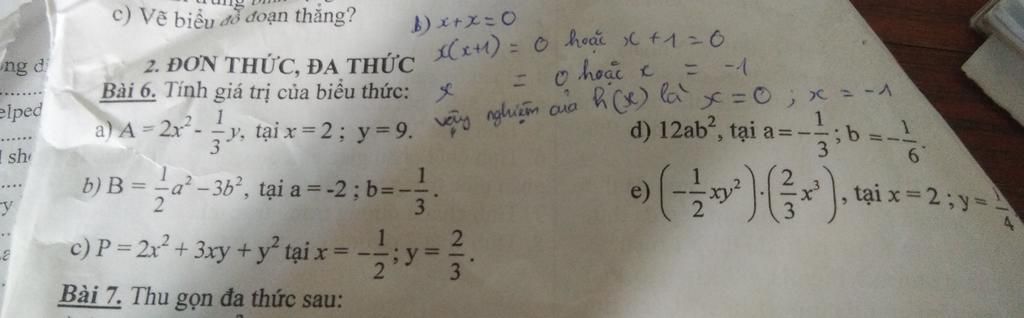 c) Vẽ biểu đồ đoạn thẳng?
b) x + x = 0
x(x+1) = 0 hoặc x + 1 = 0
x = 0 hoặc x = -1
vậy nghiệm của h(x) là x = 0 ; x = -1
2. ĐƠN THỨC, ĐA THỨC
Bài 6. Tính giá trị của biểu thức:
a) A = 2x² - 1/3 y, tại x = 2 ; y = 9.
d) 12ab², tại a = -1/3 ; b = -1/6.
b) B = 1/2 a² – 3b², tại a = -2 ; b = -1/3.
e) (-1/2 xy²).(2/3 x³), tại x = 2 ; y = 1/4
c) P = 2x² + 3xy + y² tại x = -1/2 ; y = 2/3.
Bài 7. Thu gọn đa thức sau:
elped